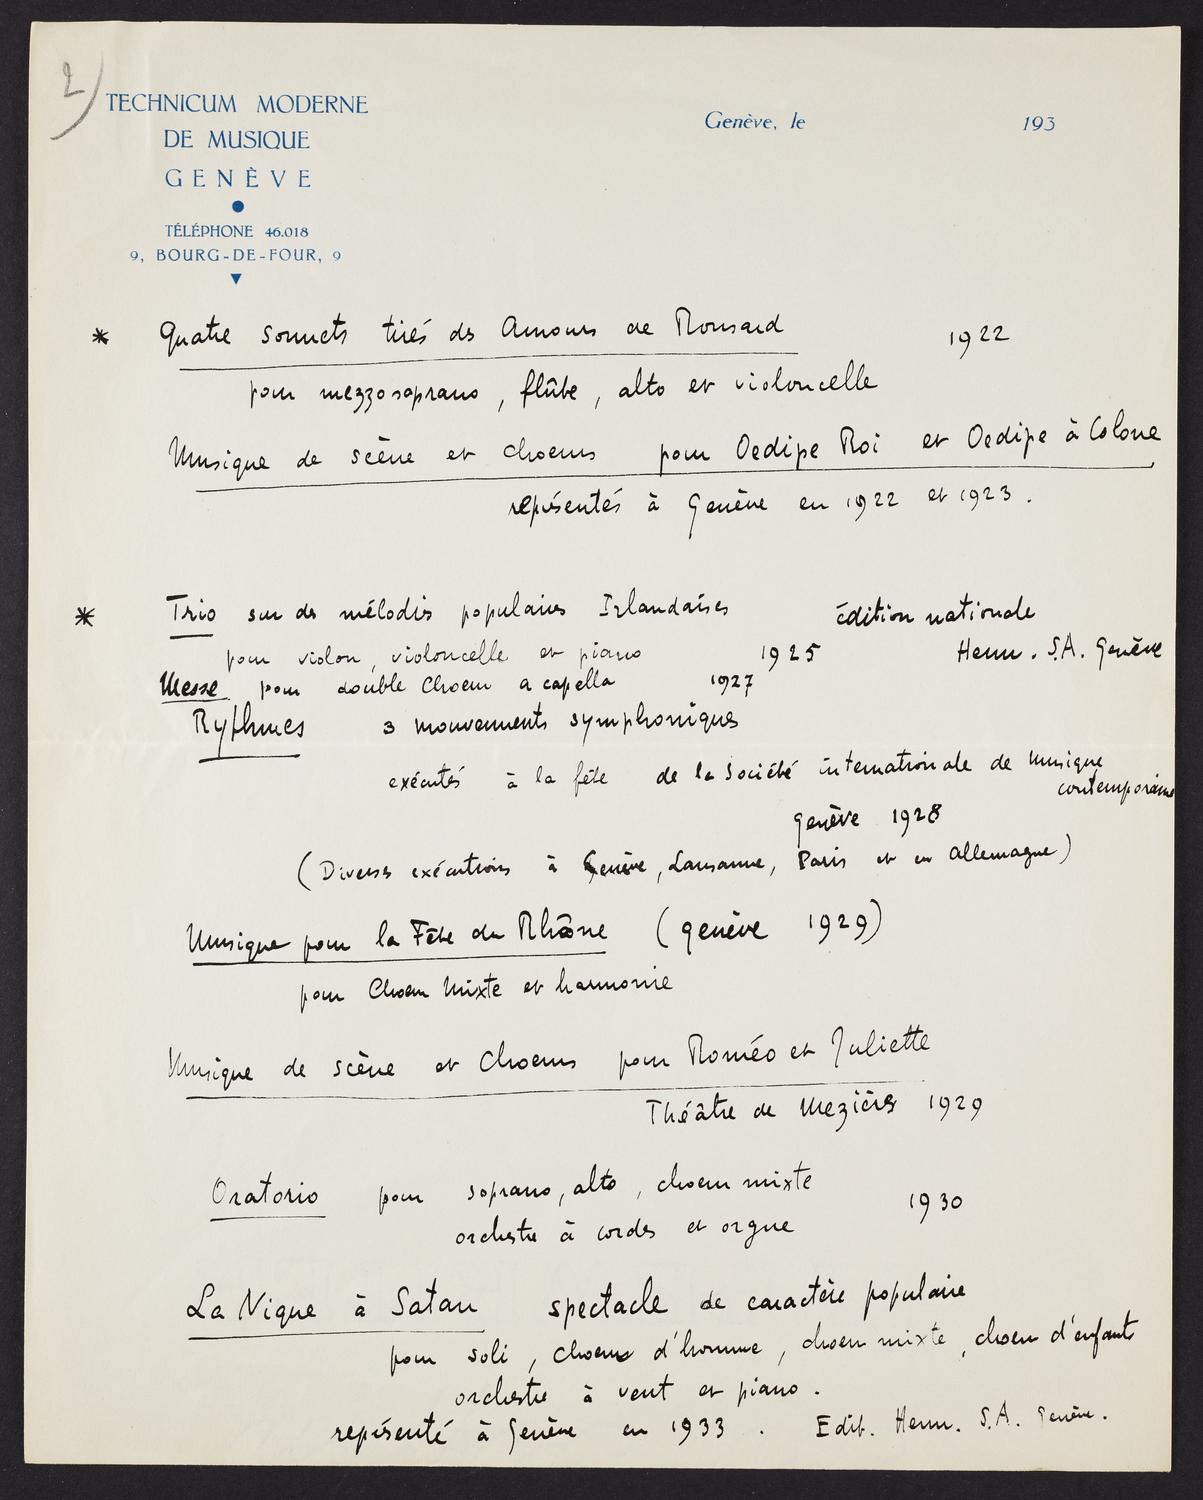 2)
TECHNICUM MODERNE
DE MUSIQUE
GENÈVE
TÉLÉPHONE 46.018
9, BOURG-DE-FOUR, 9
Genève, le 193
* Quatre sonnets tirés des Amours de Ronsard 1922
pour mezzosoprano, flûte, alto et violoncelle
Musique de scène et choeurs pour Oedipe Roi et Oedipe à Colone
représentés à Genève en 1922 et 1923.
* Trio sur des mélodies populaires Irlandaises édition nationale
pour violon, violoncelle et piano 1925 Henn. S.A. Genève
Messe pour double Choeur a capella 1927
Rythmes 3 mouvements symphoniques
exécutés à la fête de la Société internationale de Musique
contemporaine
Genève 1928
(Diverses exécutions à Genève, Lausanne, Paris et en Allemagne)
Musique pour la Fête du Rhône (genève 1929)
pour Choeur Mixte et harmonie
Musique de scène et Choeurs pour Roméo et Juliette
Théâtre de Mezières 1929
Oratorio pour soprano, alto, choeur mixte
orchestre à cordes et orgue 1930
La Nique à Satan spectacle de caractère populaire
pour soli, choeurs d'homme, choeur mixte, choeur d'enfants
orchestre à vent et piano.
représenté à Genève en 1933. Edit. Henn. S.A. Genève.